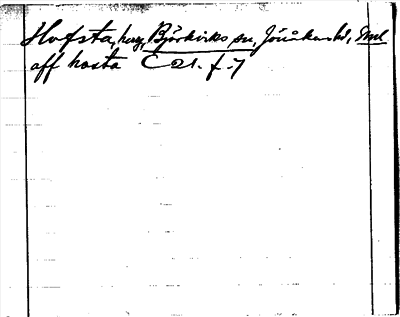 Hofsta, herg, Björkviks sn, Jönåkers hd, Sml
aff hosta C 21. f. 7